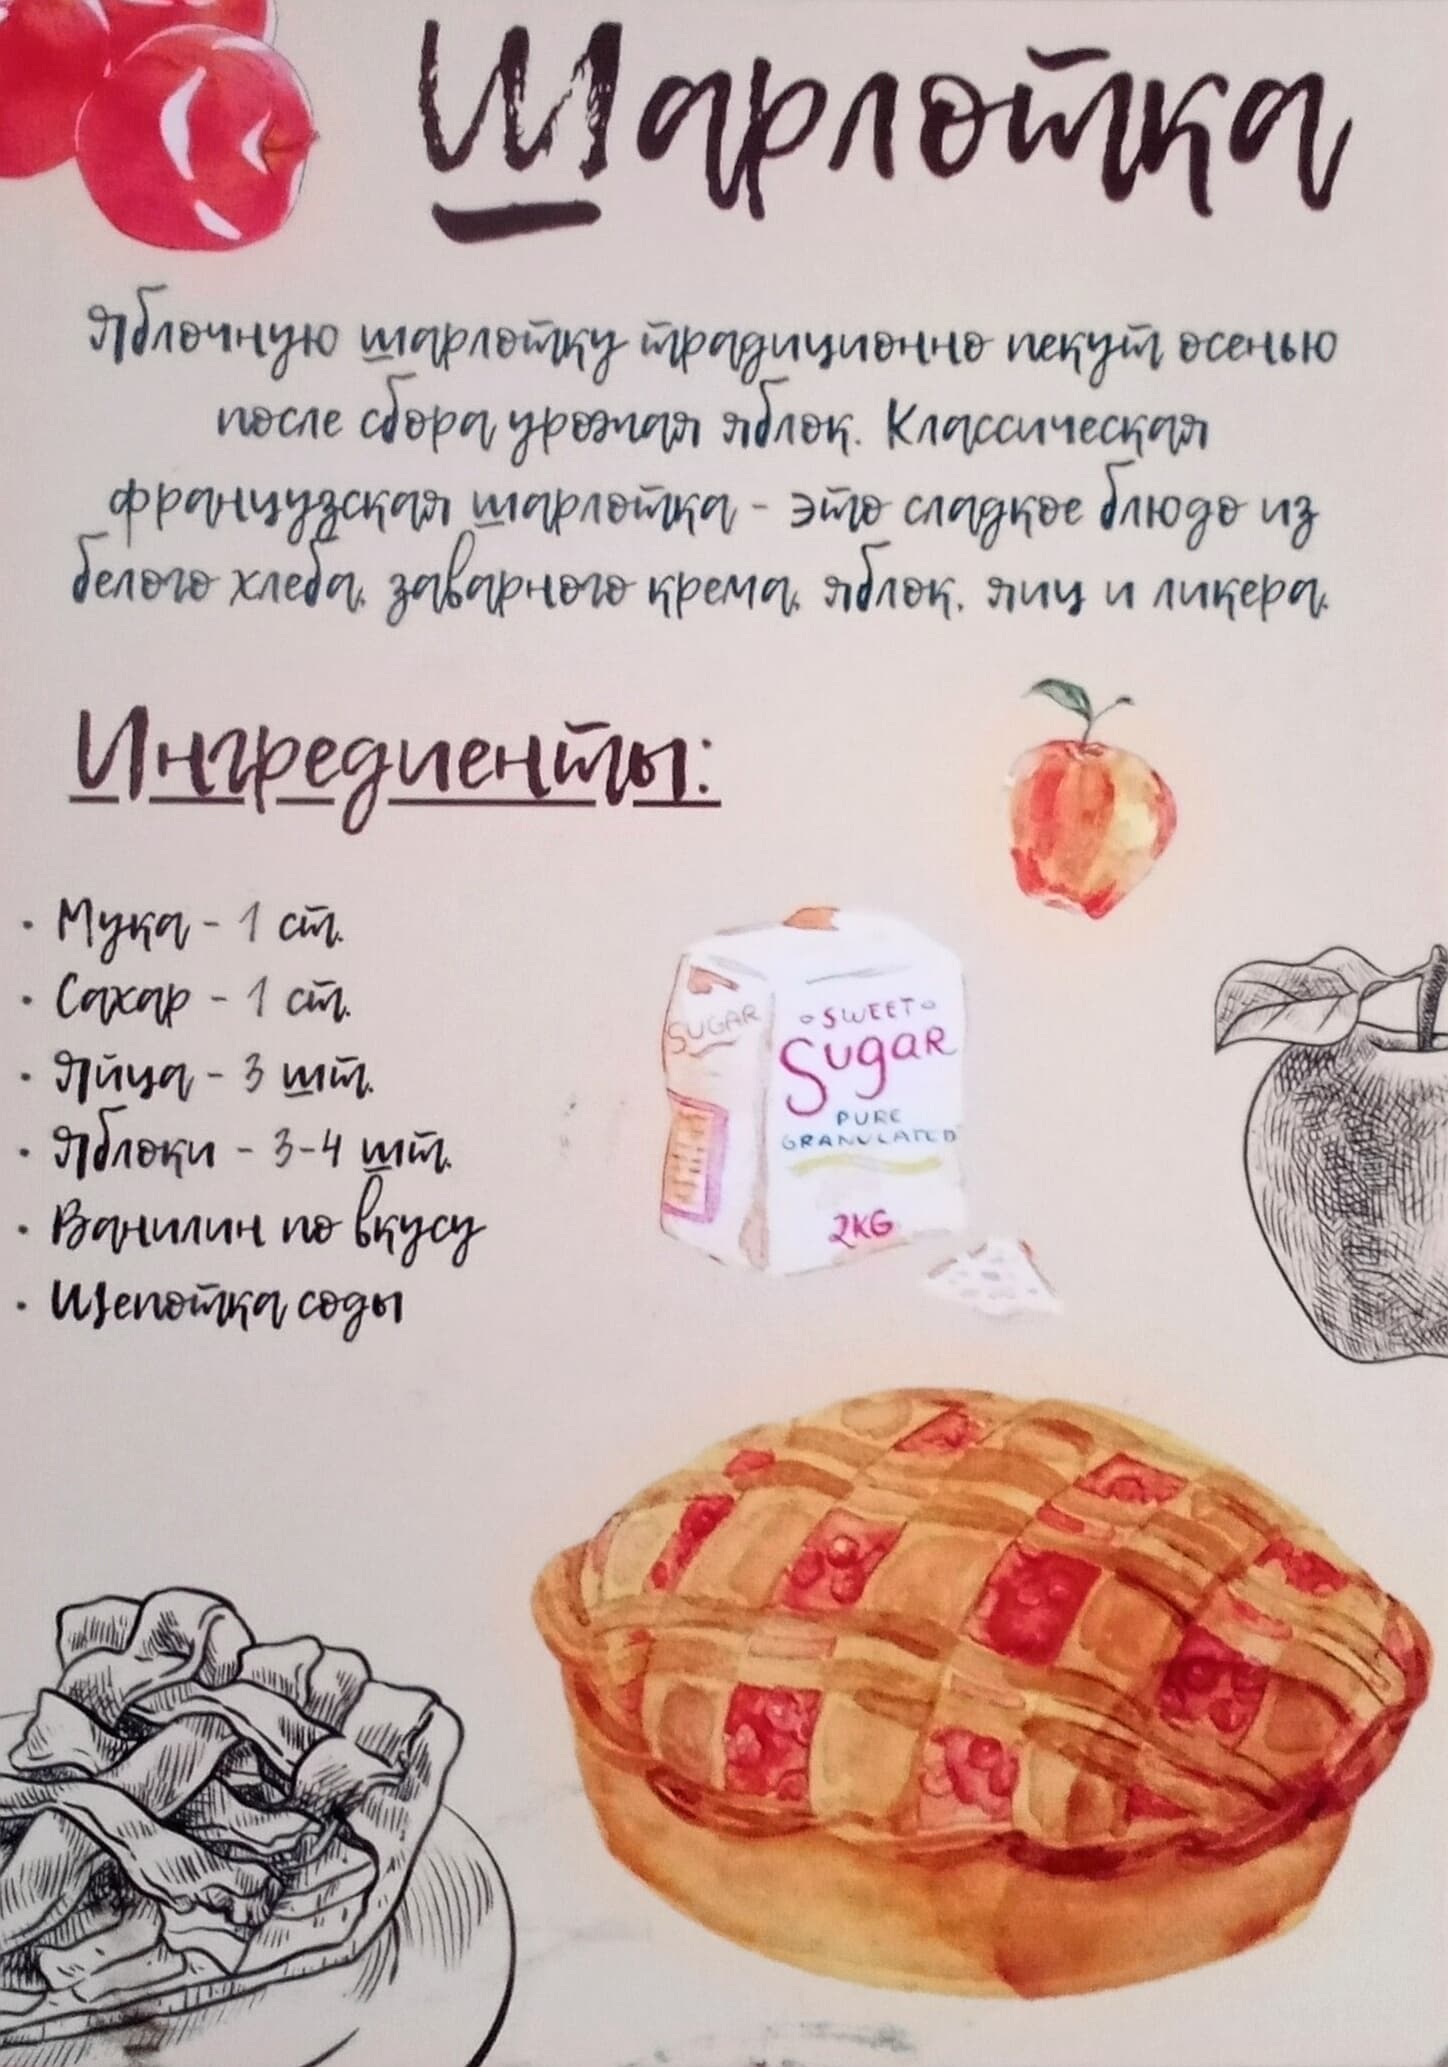 Шарлотка
Яблочную шарлотку традиционно пекут осенью
после сбора урожая яблок. Классическая
французская шарлотка - это сладкое блюдо из
белого хлеба, заварного крема, яблок, яиц и ликера.
Ингредиенты:
• Мука - 1 ст.
• Сахар - 1 ст.
• Яйца - 3 шт.
• Яблоки - 3-4 шт.
• Ванилин по вкусу
• Щепотка соды
SUGAR
SWEET
Sugar
PURE
GRANULATED
2KG